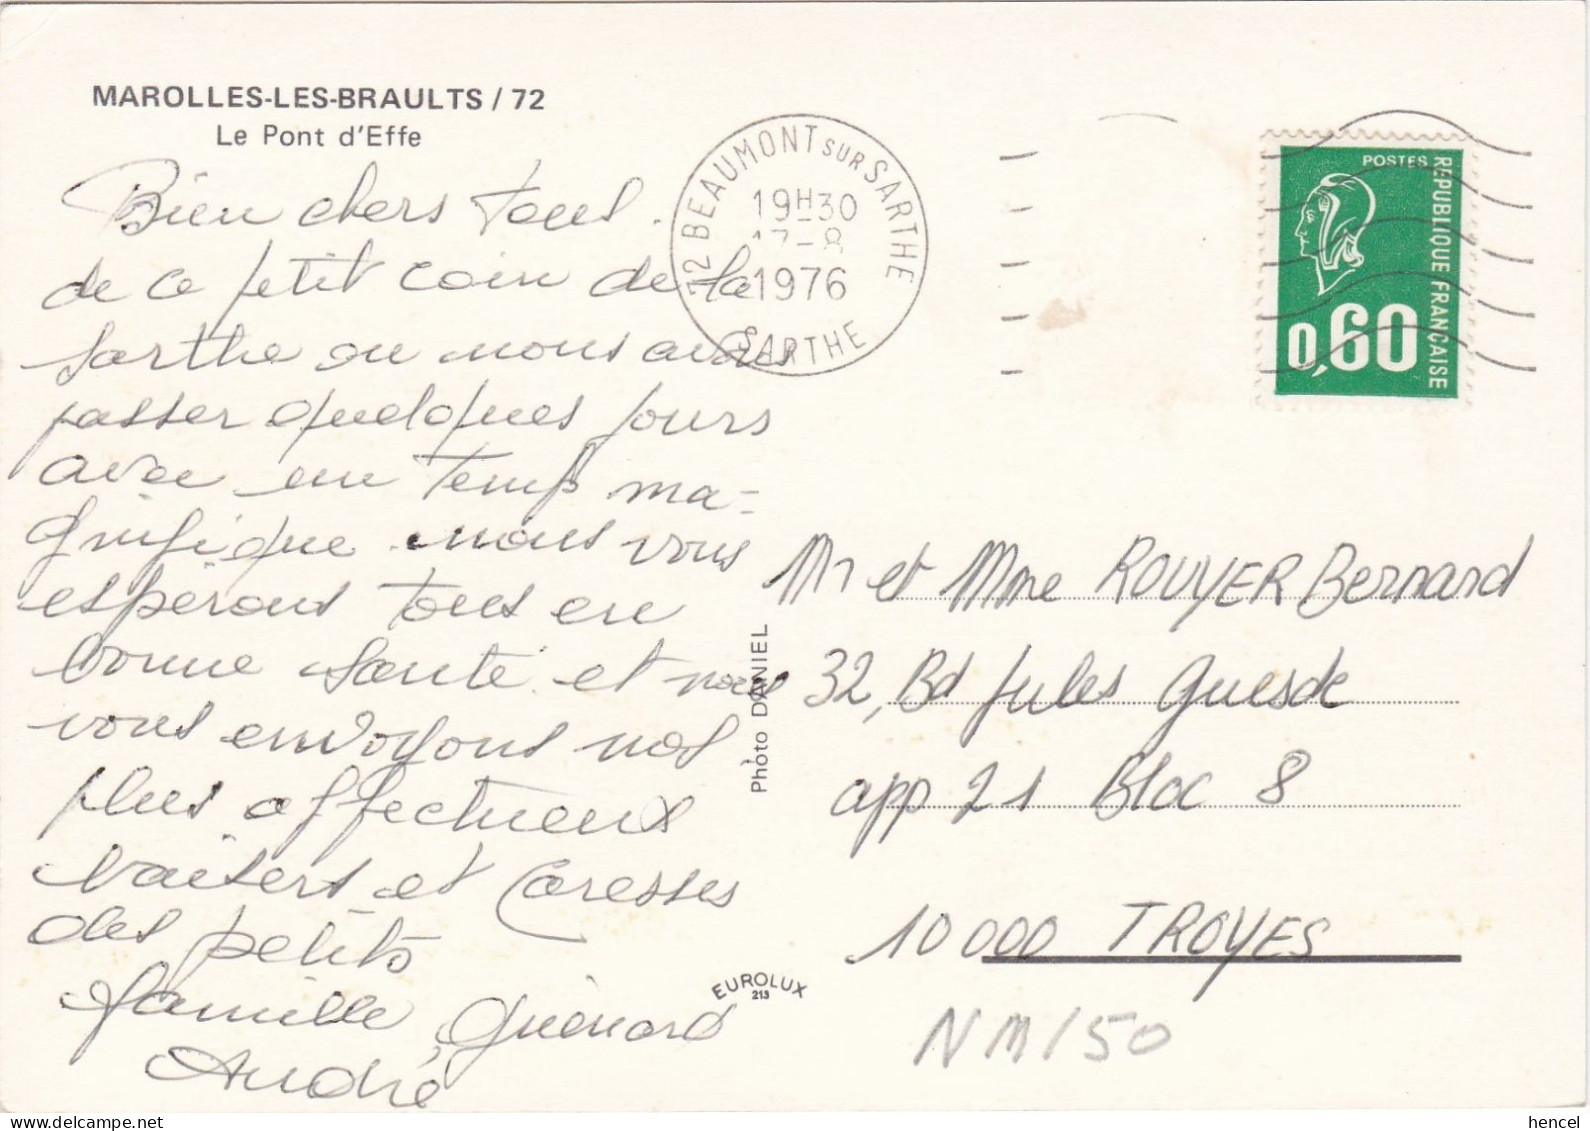 MAROLLES-LES-BRAULTS / 72
Le Pont d'Effe
Bien chers tous.
de ce petit coin de la
Sarthe ou nous avons
passer quelques jours
avec un temps ma-
gnifique. nous vous
espérons tous en
bonne santé et nous
vous envoyons nos
plus affectueux
baisers et Caresses
des petits
famille Guénard
André
72 BEAUMONT SUR SARTHE
19H30
17-8
1976
SARTHE
POSTES
REPUBLIQUE FRANÇAISE
0,60
Mr et Mme ROUYER Bernard
32, Bd Jules Guesde
app 21 Bloc 8
10000 TROYES
NM/50
Photo DANIEL
EUROLUX
213
hencel